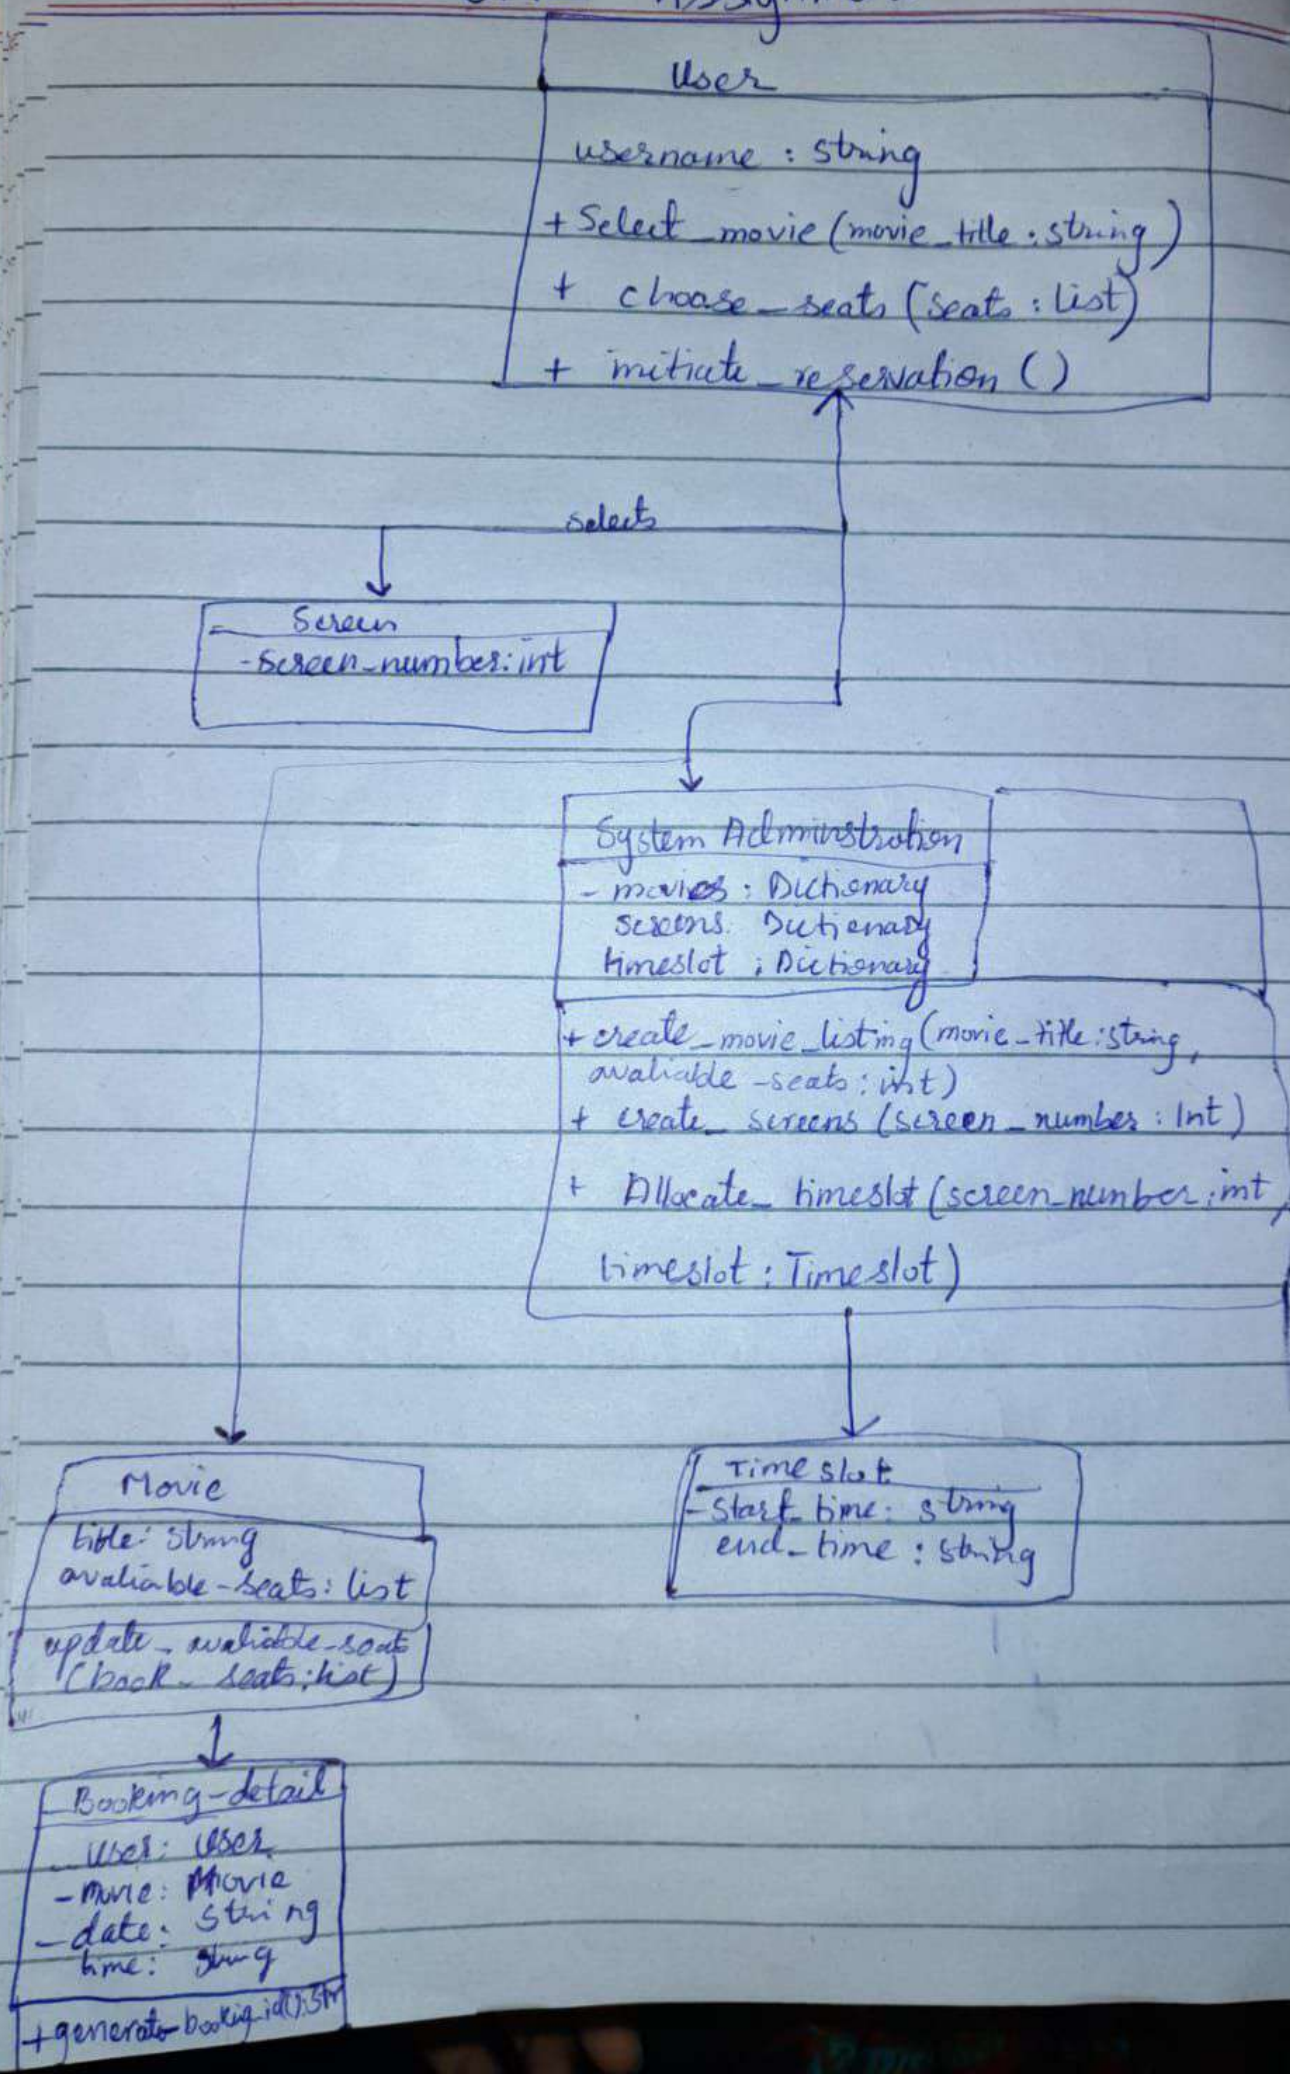 User
username : string
+ Select_movie (movie_title : string)
+ choose_seats (seats : list)
+ initiate_reservation ()
selects
Screen
- screen_number : int
System Adminstration
- movies : Dictionary
screens : Dictionary
timeslot : Dictionary
+ create_movie_listing (movie_title : string,
avaliable_seats : int)
+ create_screens (screen_number : Int)
+ Allocate_timeslot (screen_number : int,
timeslot : Timeslot)
Movie
title : string
avaliable_seats : list
update_avaliable_seats
(book_seats : list)
Timeslot
- start_time : string
end_time : string
Booking-detail
- user : User
- movie : Movie
- date : String
time : string
+ generate_bookig_id() : Str